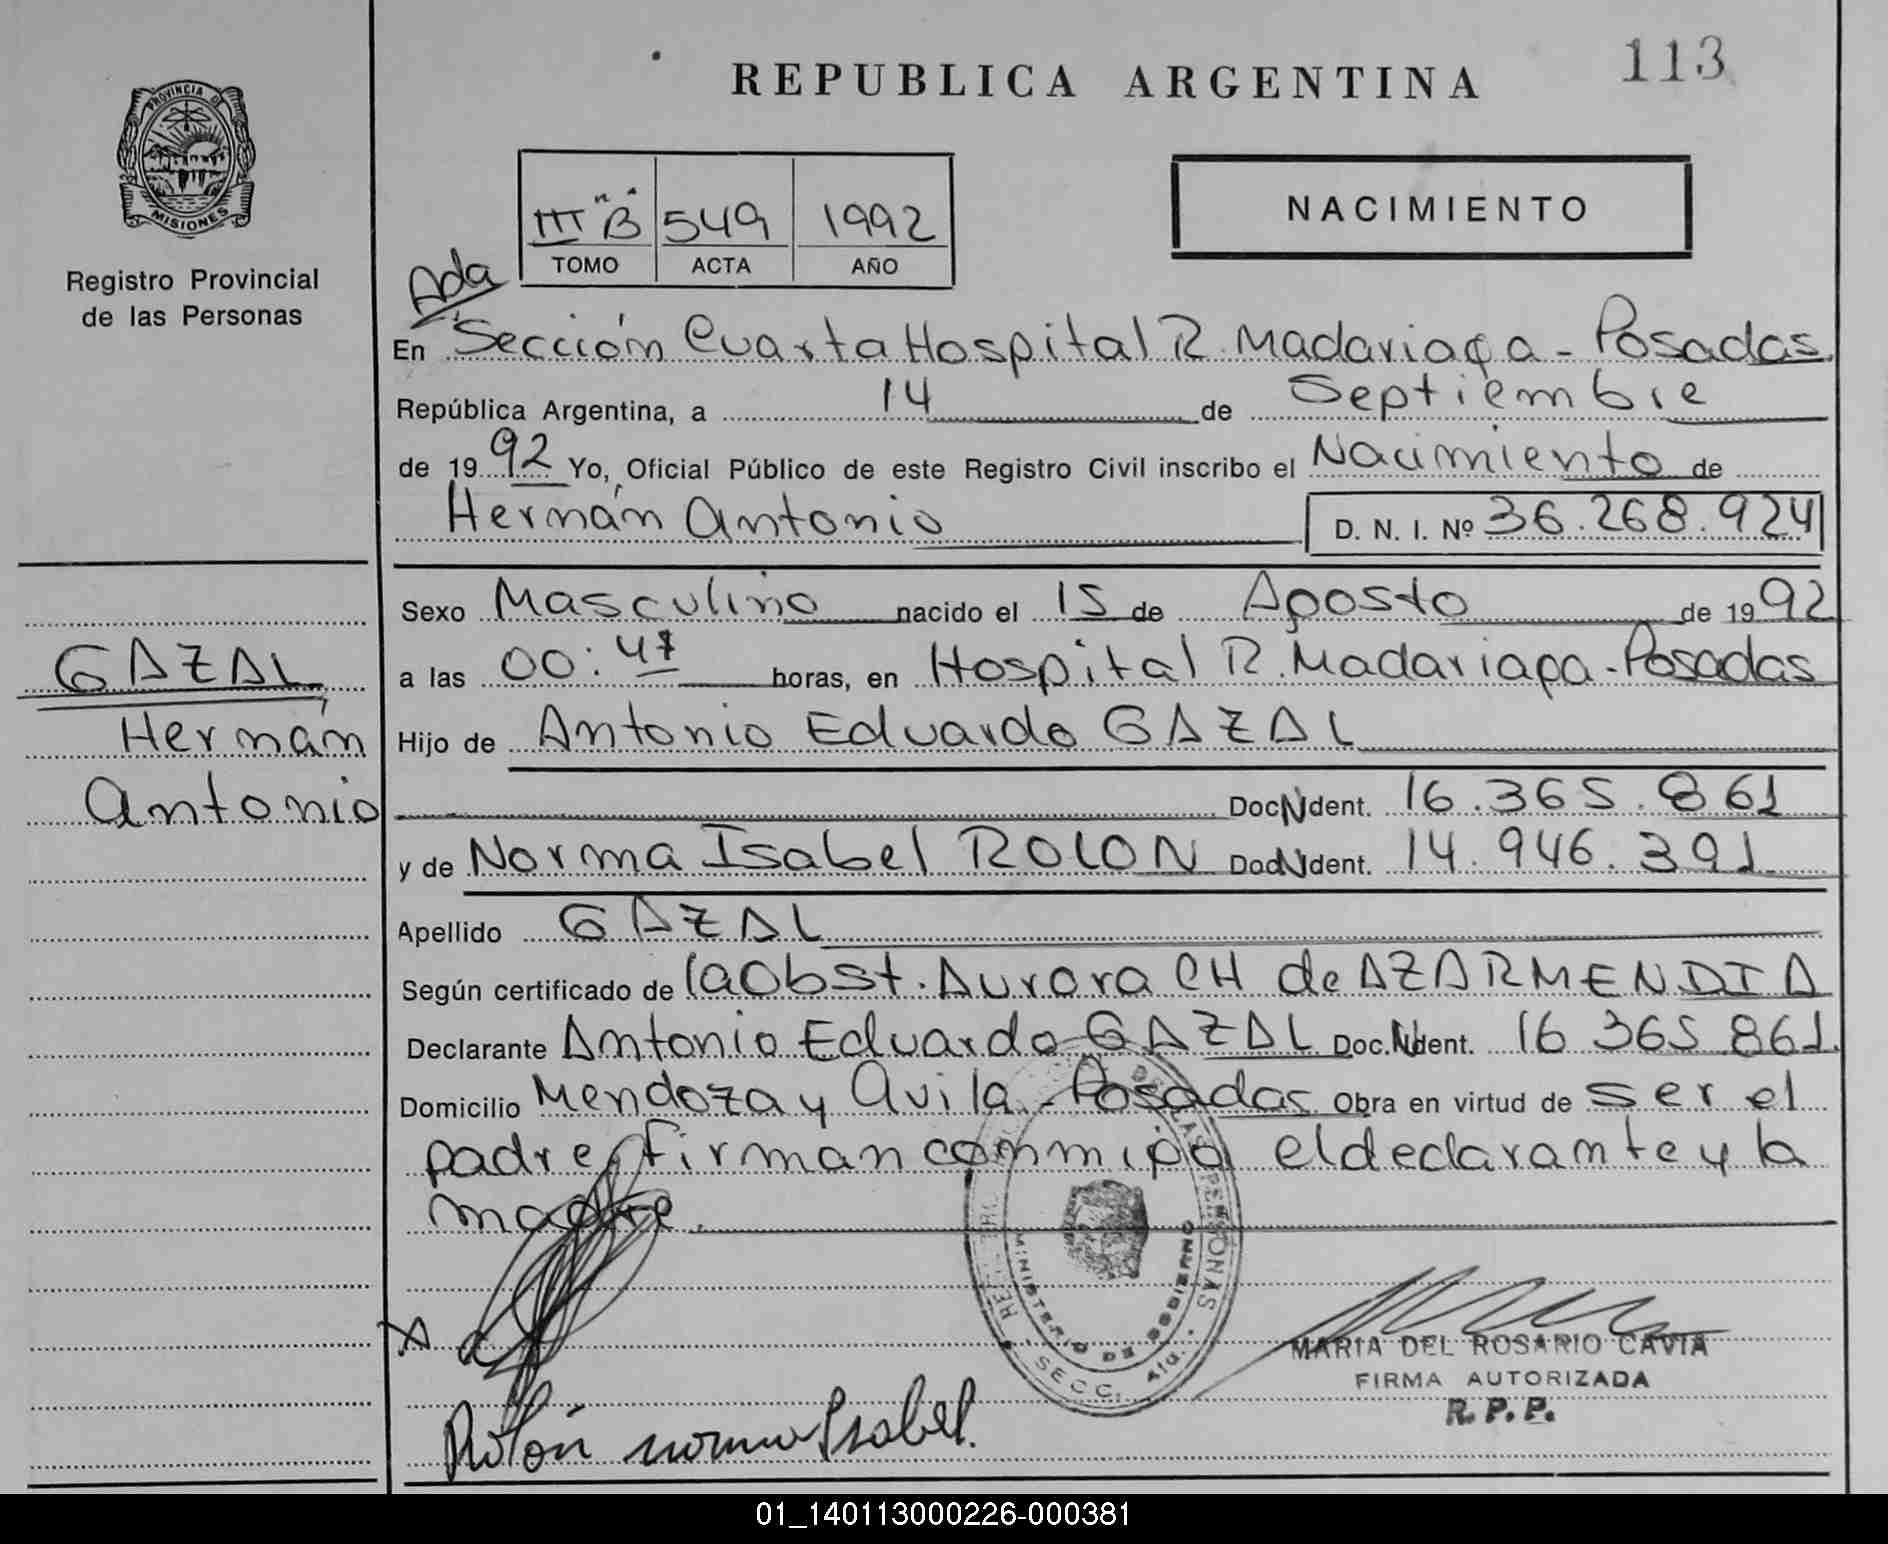 113
REPUBLICA ARGENTINA
PROVINCIA DE
MISIONES
Registro Provincial
de las Personas
III "B" 549 1992
TOMO ACTA AÑO
NACIMIENTO
Ada
En Sección Cuarta Hospital R. Madariaga - Posadas
República Argentina, a 14 de Septiembre
de 1992 Yo, Oficial Público de este Registro Civil inscribo el Nacimiento de
Hernán Antonio D. N. I. Nº 36.268.924
Sexo Masculino nacido el 15 de Agosto de 1992
a las 00:47 horas, en Hospital R. Madariaga - Posadas
GAZAL
Hernán
Antonio
Hijo de Antonio Eduardo GAZAL
Doc N Ident. 16.365.861
y de Norma Isabel ROLON Doc N Ident. 14.946.391
Apellido GAZAL
Según certificado de la Obst. Aurora CH de AZARMENDIA
Declarante Antonio Eduardo GAZAL Doc. N Ident. 16 365 861
Domicilio Mendoza y Avila - Posadas Obra en virtud de ser el
padre, firman conmigo el declarante y la
madre.
DE LAS PERSONAS
MINISTERIO DE GOBIERNO
SECC. 4ta.
MARIA DEL ROSARIO CAVIA
FIRMA AUTORIZADA
R. P. P.
Rolón norma Isabel.
01_140113000226-000381